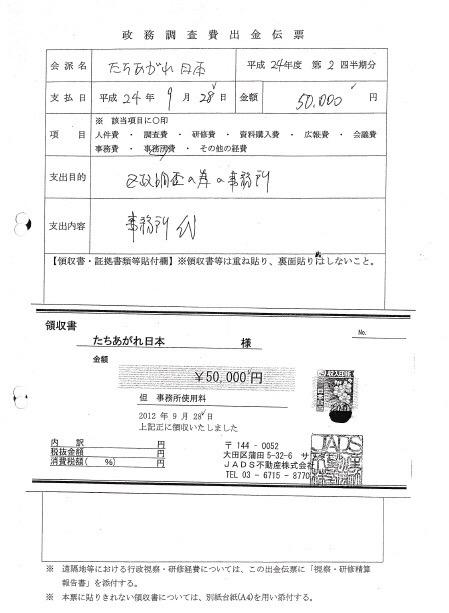 政務調査費出金伝票
会派名 たちあがれ日本 平成24年度 第2四半期分
支払日 平成 24 年 9 月 28 日 金額 50,000 円
項目 ※ 該当項目に○印
人件費 ・ 調査費 ・ 研修費 ・ 資料購入費 ・ 広報費 ・ 会議費
事務費 ・ 事務所費 ・ その他の経費
支出目的 区政調査の為の事務所
支出内容 事務所代
【領収書・証拠書類等貼付欄】※領収書等は重ね貼り、裏面貼りはしないこと。
領収書
No.
たちあがれ日本 様
金額
￥50,000円
但 事務所使用料
2012 年 9 月 28日
上記正に領収いたしました
内 訳 円
税抜金額 円
消費税額( %) 円
〒144-0052
大田区蒲田 5-32-6
JADS不動産株式会
TEL 03-6715-8770
JADS
※ 遠隔地等における行政視察・研修経費については、この出金伝票に「視察・研修精算
報告書」を添付する。
※ 本票に貼りきれない領収書については、別紙台紙(A4)を用い添付する。